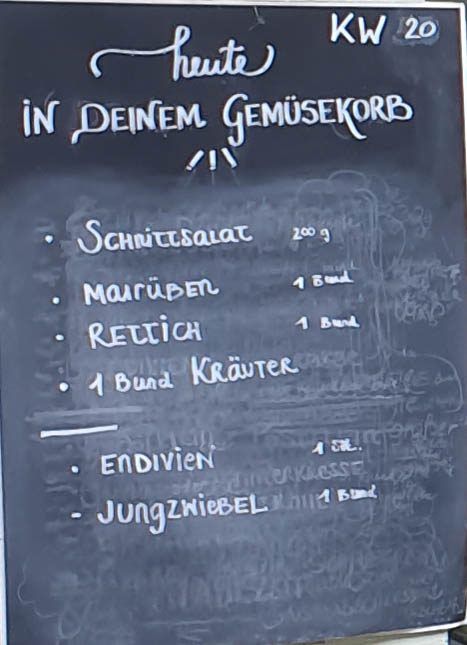 KW 20
heute
in Deinem Gemüsekorb
• Schnittsalat 200 g
• Mairüben 1 Bund
• Rettich 1 Bund
• 1 Bund Kräuter
• Endivien 1 Stk.
- Jungzwiebel 1 Bund